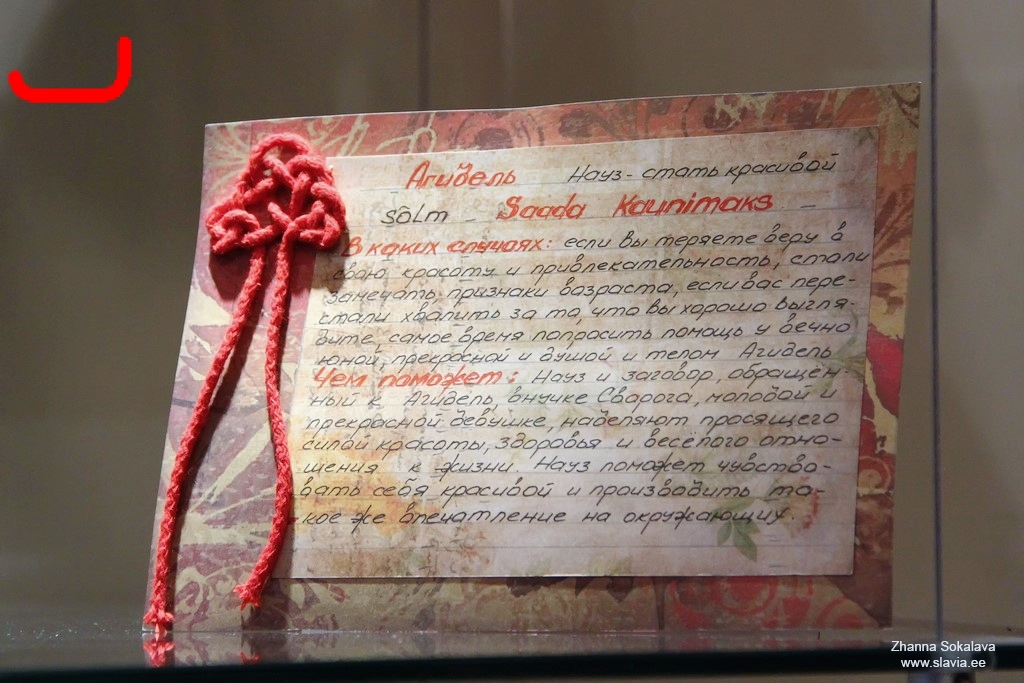 Агидель Науз - стать красивой
Sõlm - Saada Kaunimaks -
В каких случаях: если вы теряете веру в
свою красоту и привлекательность, стали
замечать признаки возраста, если вас пере-
стали хвалить за то, что вы хорошо выгля-
дите, самое время попросить помощь у вечно
юной, прекрасной и душой и телом Агидель
Чем поможет: Науз и заговор, обращён-
ный к Агидель, внучке Сварога, молодой и
прекрасной девушке, наделяют просящего
силой красоты, здоровья и весёлого отно-
шения к жизни. Науз поможет чувство-
вать себя красивой и производить та-
кое же впечатление на окружающих.
Zhanna Sokalava
www.slavia.ee